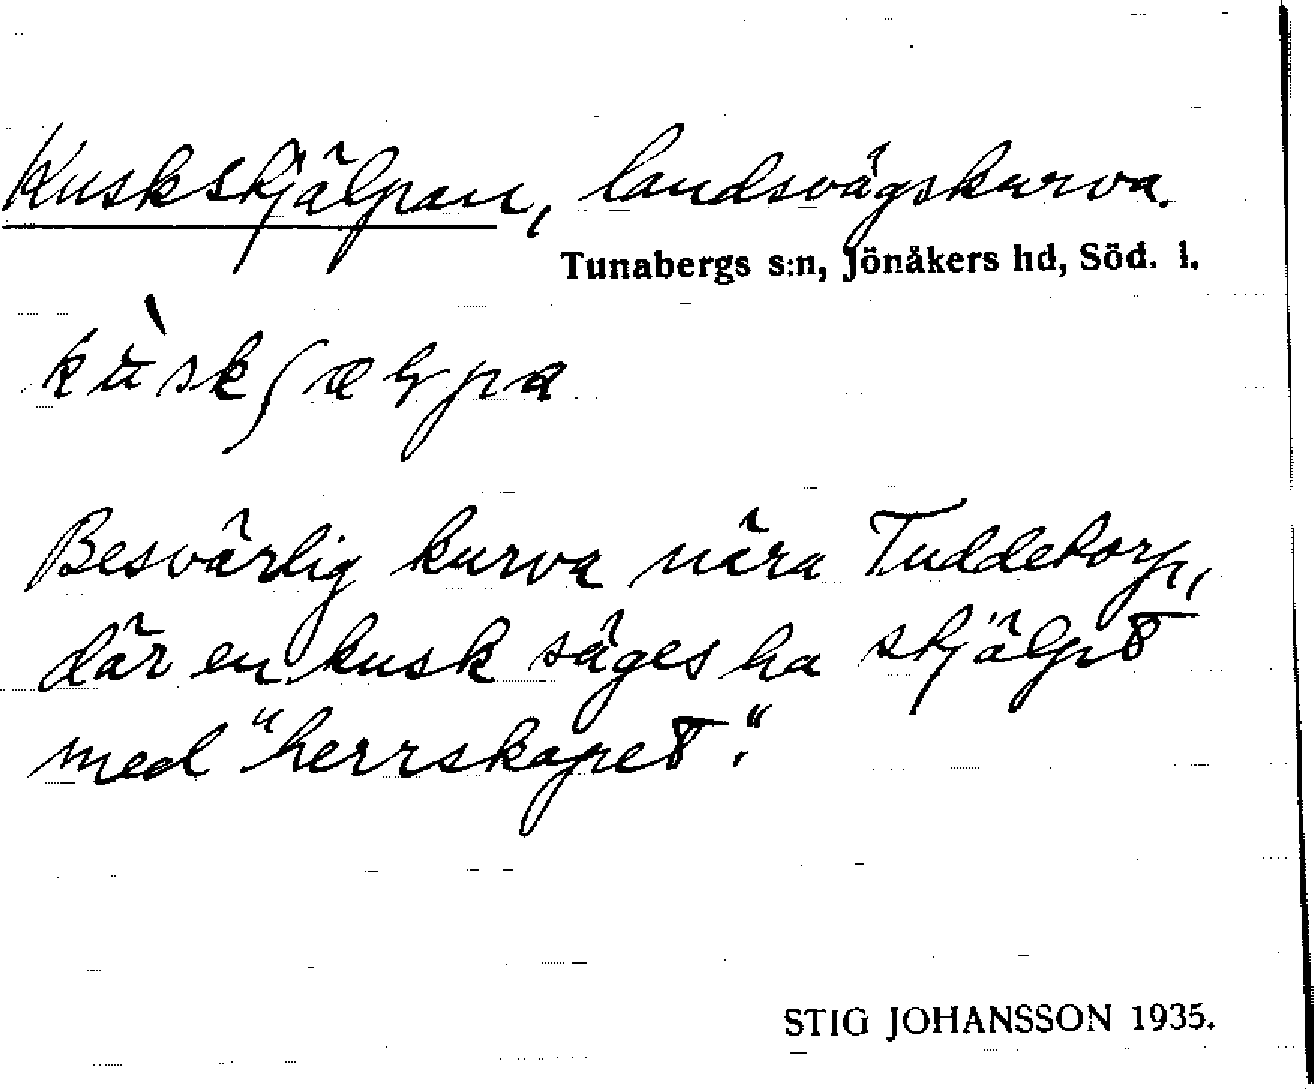 Kuskskjälpan, landsvägskurva.
Tunabergs s:n, Jönåkers hd, Söd. l.
Besvärlig kurva nära Tuddetorp,
där en kusk säges ha skjälpt
med "herrskapet".
STIG JOHANSSON 1935.